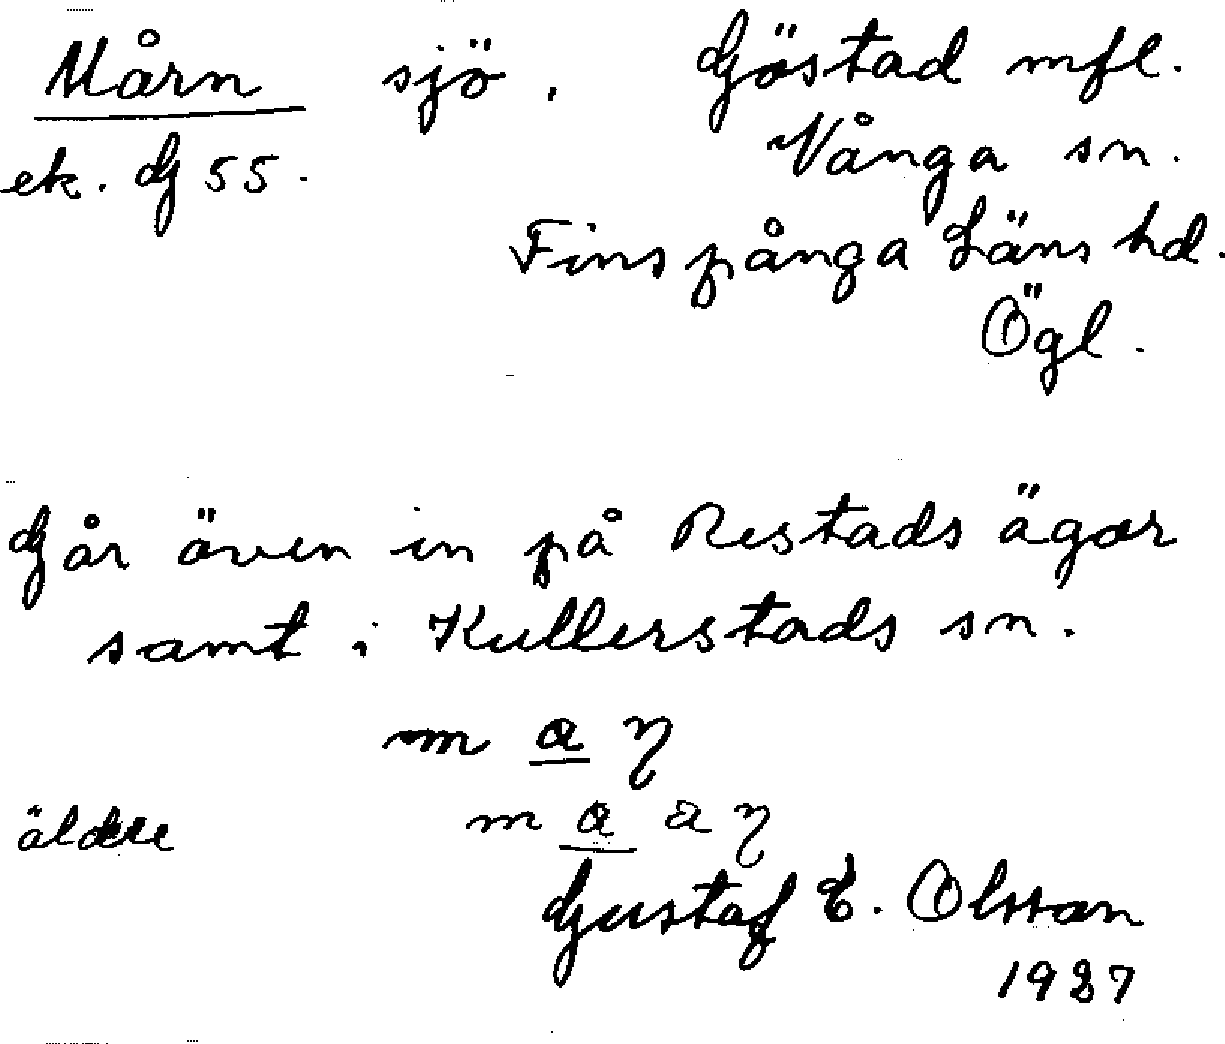 Mårn sjö, Göstad mfl.
ek. G 55. Vånga sn.
Finspånga Läns hd.
Ögl.
Går även in på Restads ägor
samt i Kullerstads sn.
äldre
Gustaf E. Olsson